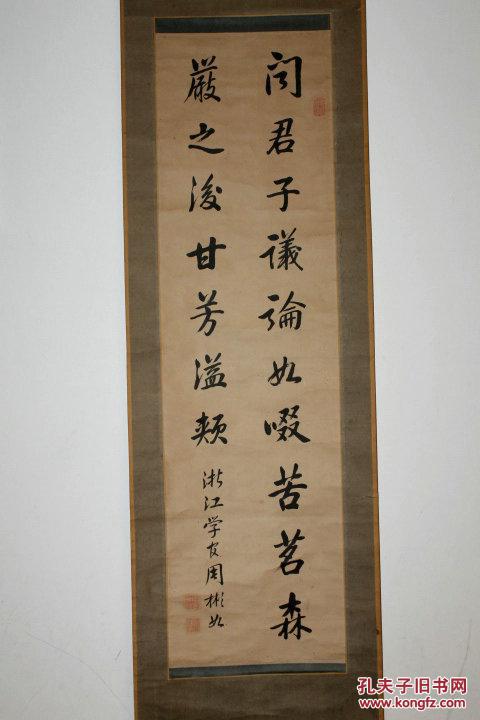 闻君子议论如啜苦茗森
严之后甘芳溢颊
浙江学友周彬如
孔夫子旧书网
www.kongfz.com